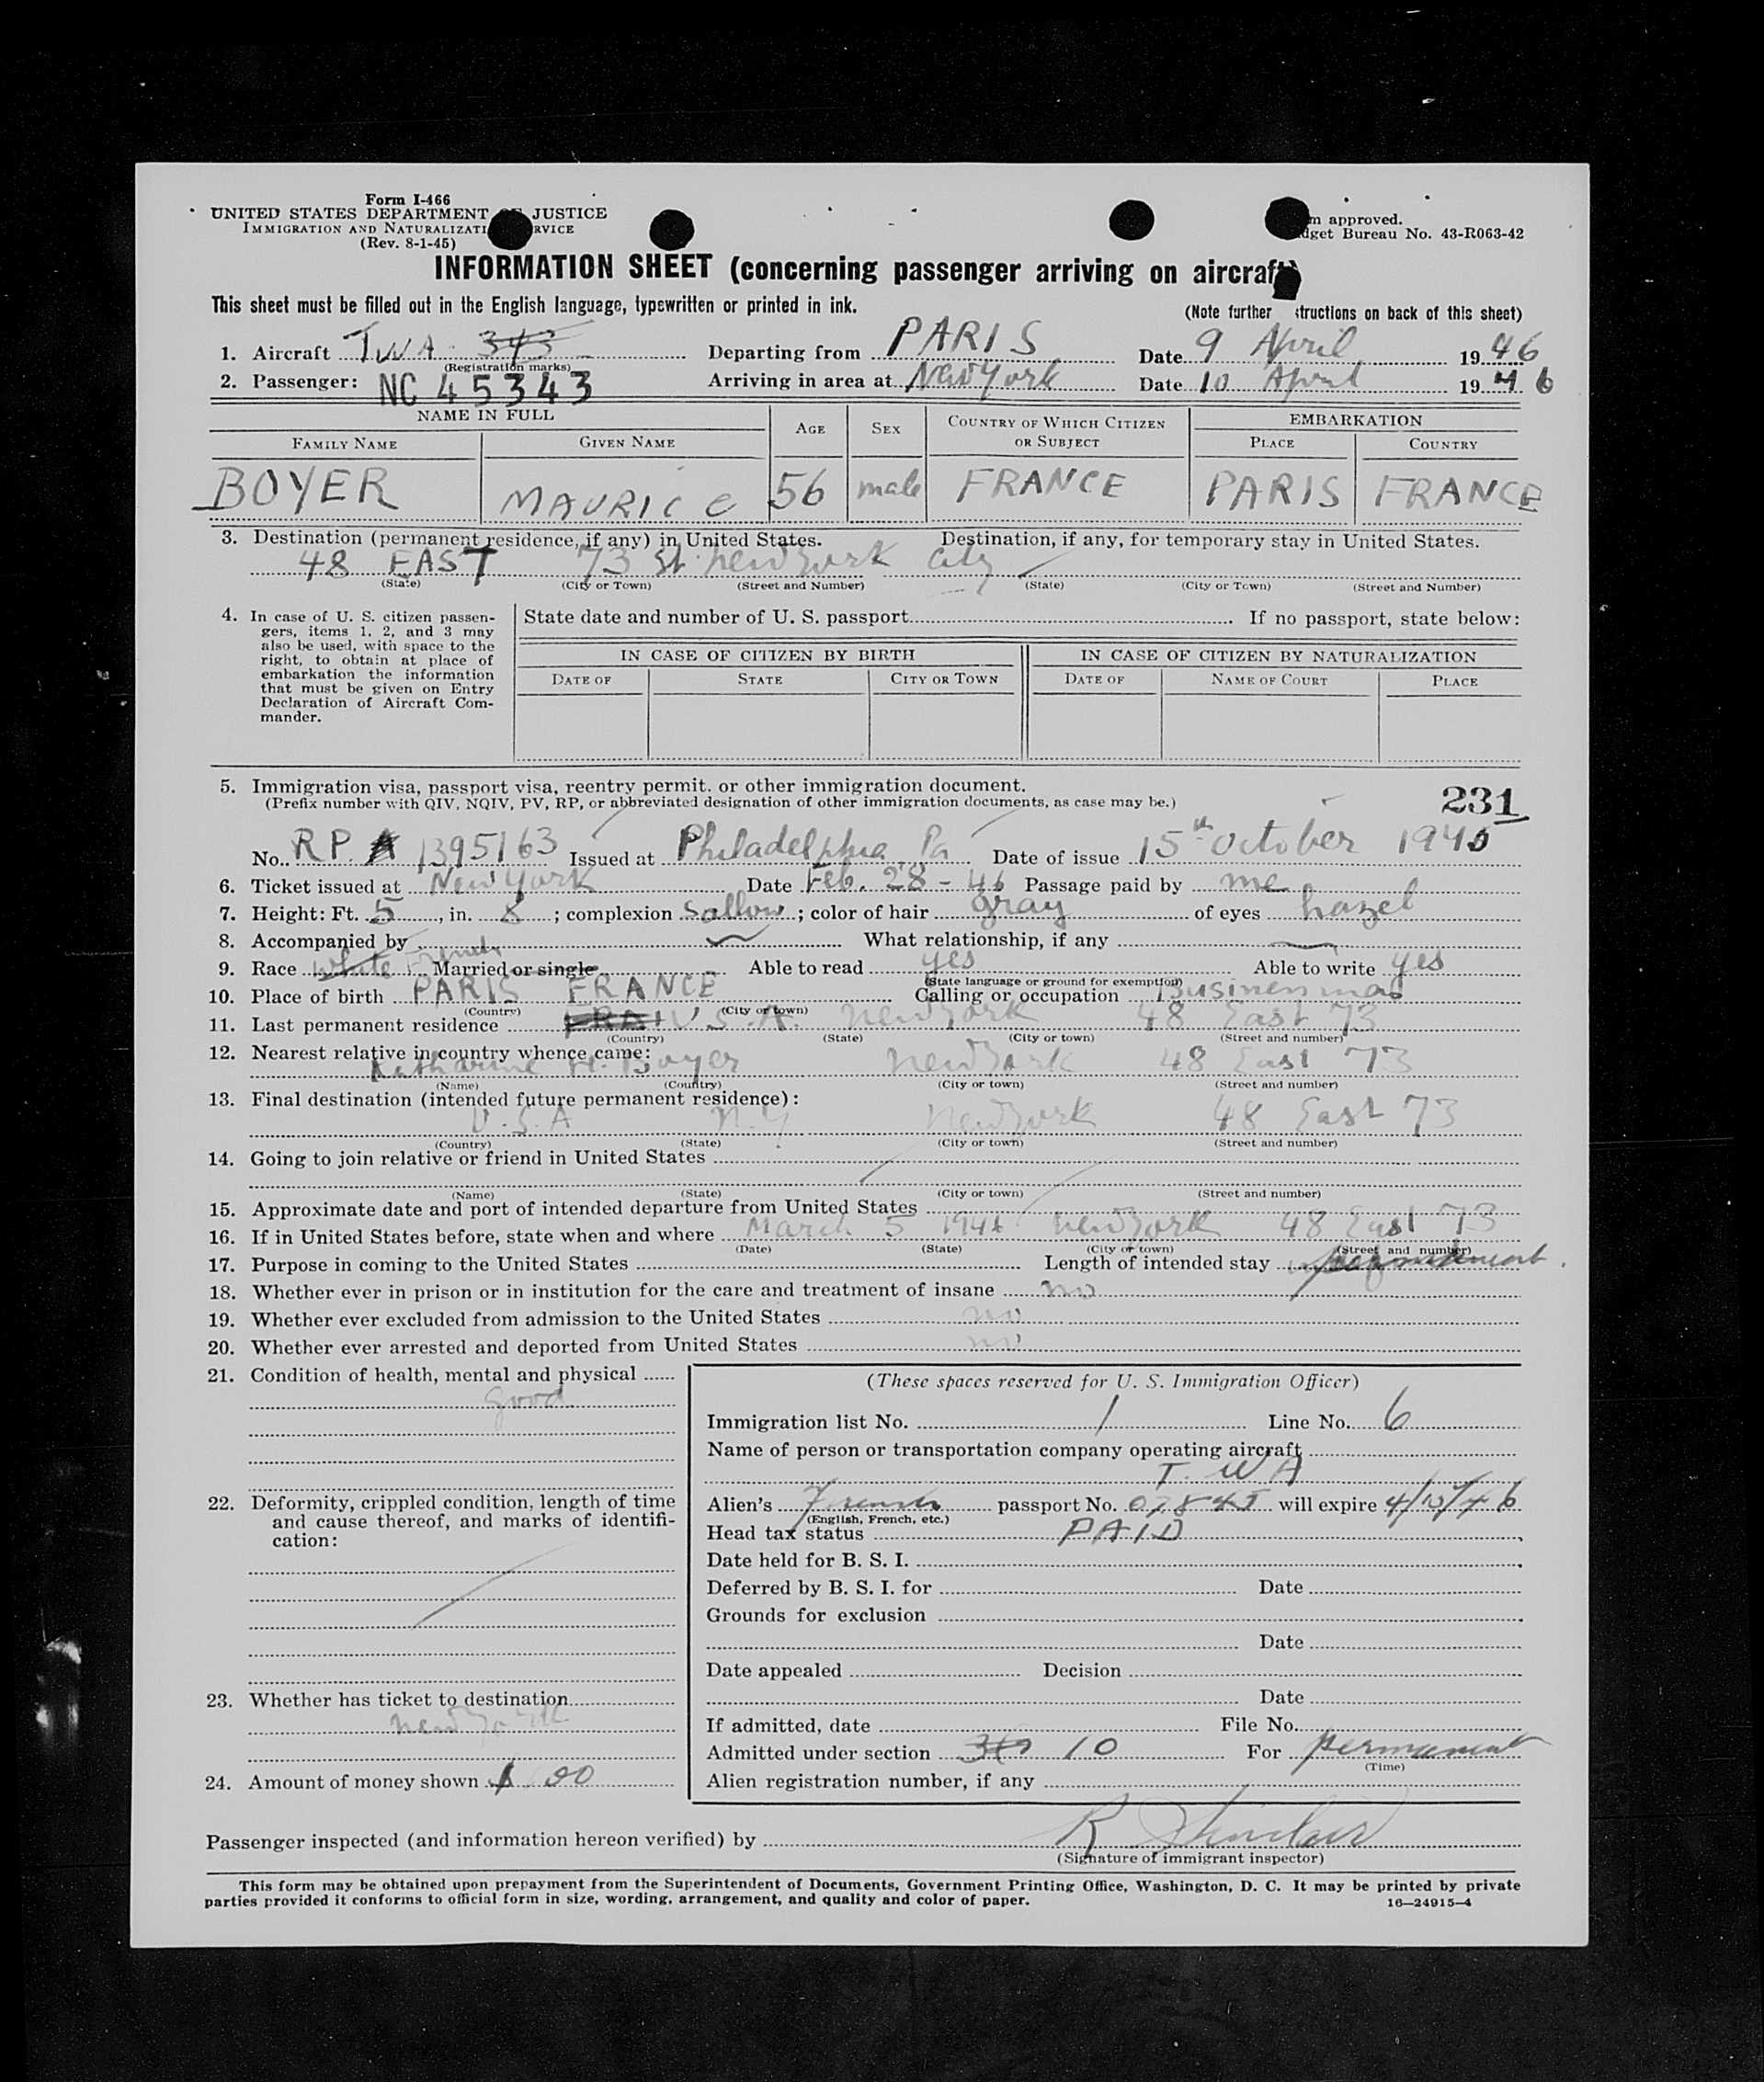 Form I-466
UNITED STATES DEPARTMENT JUSTICE
IMMIGRATION AND NATURALIZATI RVICE
(Rev. 8-1-45)
m approved.
dget Bureau No. 43-R063-42
INFORMATION SHEET (concerning passenger arriving on aircraft)
This sheet must be filled out in the English language, typewritten or printed in ink.
(Note further structions on back of this sheet)
1. Aircraft TWA 343 Departing from PARIS Date 9 April 1946
(Registration marks)
2. Passenger: NC 45343 Arriving in area at New York Date 10 April 1946
NAME IN FULL AGE SEX COUNTRY OF WHICH CITIZEN OR SUBJECT EMBARKATION
FAMILY NAME GIVEN NAME PLACE COUNTRY
BOYER MAURICE 56 male FRANCE PARIS FRANCE
3. Destination (permanent residence, if any) in United States. Destination, if any, for temporary stay in United States.
48 EAST 73 St. New York City
(State) (City or Town) (Street and Number) (State) (City or Town) (Street and Number)
4. In case of U. S. citizen passengers, items 1, 2, and 3 may also be used, with space to the right, to obtain at place of embarkation the information that must be given on Entry Declaration of Aircraft Commander.
State date and number of U. S. passport If no passport, state below:
IN CASE OF CITIZEN BY BIRTH IN CASE OF CITIZEN BY NATURALIZATION
DATE OF STATE CITY OR TOWN DATE OF NAME OF COURT PLACE
5. Immigration visa, passport visa, reentry permit, or other immigration document.
(Prefix number with QIV, NQIV, PV, RP, or abbreviated designation of other immigration documents, as case may be.)
231
No. RP A 1395163 Issued at Philadelphia Pa Date of issue 15th October 1945
6. Ticket issued at New York Date Feb. 28 - 46 Passage paid by me
7. Height: Ft. 5, in. 8; complexion Sallow; color of hair gray of eyes hazel
8. Accompanied by What relationship, if any
9. Race white French Married or single Able to read yes Able to write yes
(State language or ground for exemption)
10. Place of birth PARIS FRANCE Calling or occupation Businessman
(Country) (City or town)
11. Last permanent residence U.S.A. New York 48 East 73
(Country) (State) (City or town) (Street and number)
12. Nearest relative in country whence came:
Katharine H. Boyer New York 48 East 73
(Name) (Country) (City or town) (Street and number)
13. Final destination (intended future permanent residence):
U.S.A N.Y New York 48 East 73
(Country) (State) (City or town) (Street and number)
14. Going to join relative or friend in United States
(Name) (State) (City or town) (Street and number)
15. Approximate date and port of intended departure from United States
16. If in United States before, state when and where March 5 1946 New York 48 East 73
(Date) (State) (City or town) (Street and number)
17. Purpose in coming to the United States Length of intended stay permanent
18. Whether ever in prison or in institution for the care and treatment of insane no
19. Whether ever excluded from admission to the United States no
20. Whether ever arrested and deported from United States no
21. Condition of health, mental and physical
good
22. Deformity, crippled condition, length of time and cause thereof, and marks of identification:
23. Whether has ticket to destination
New York
24. Amount of money shown $
(These spaces reserved for U. S. Immigration Officer)
Immigration list No. 1 Line No. 6
Name of person or transportation company operating aircraft
T. W A
Alien's French passport No. will expire
(English, French, etc.)
Head tax status PAID
Date held for B. S. I.
Deferred by B. S. I. for Date
Grounds for exclusion
Date
Date appealed Decision
Date
If admitted, date File No.
Admitted under section 10 For permanent
(Time)
Alien registration number, if any
Passenger inspected (and information hereon verified) by R Sinclair
(Signature of immigrant inspector)
This form may be obtained upon prepayment from the Superintendent of Documents, Government Printing Office, Washington, D. C. It may be printed by private
parties provided it conforms to official form in size, wording, arrangement, and quality and color of paper.
16—24915-4